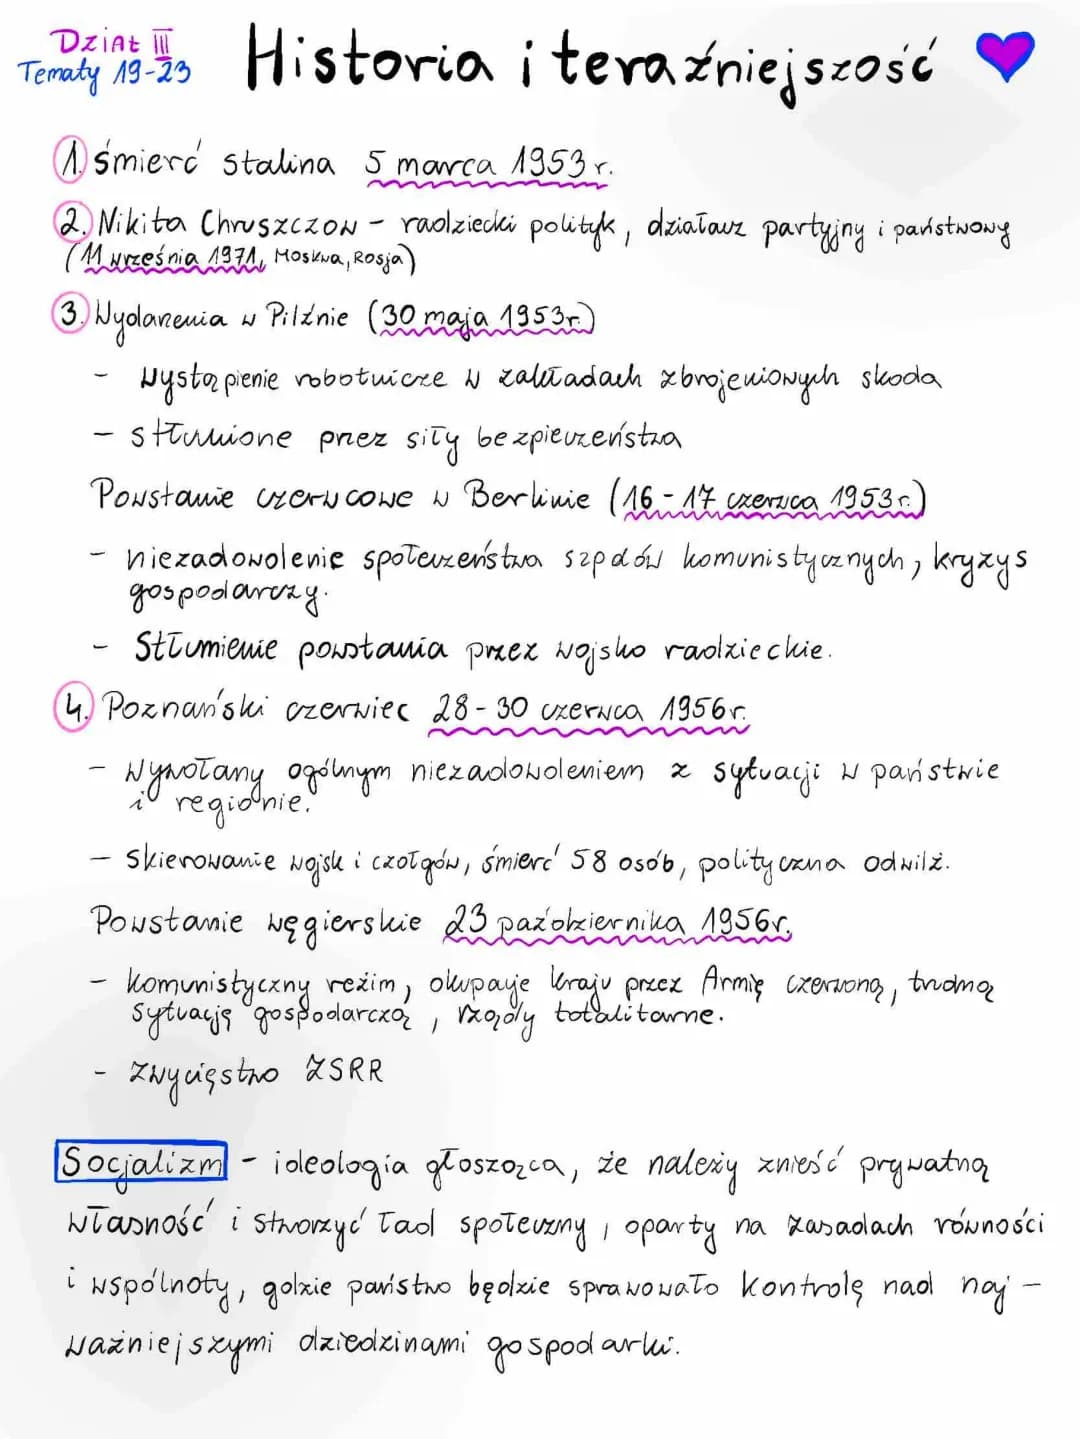 Dział III
Tematy 19-23
Historia i teraźniejszość
1. śmierć stalina 5 marca 1953 r.
2. Nikita Chruszczow - radziecki polityk, działacz partyjny i państwowy
(11 września 1971, Moskwa, Rosja)
3. Wydarzenia w Pilźnie (30 maja 1953r.)
- wystąpienie robotnicze w zakładach zbrojeniowych skoda
- stłumione przez siły bezpieczeństwa
Powstanie czerwcowe w Berlinie (16-17 czerwca 1953r.)
- niezadowolenie społeczeństwa rządów komunistycznych, kryzys
gospodarczy.
- Stłumienie powstania przez wojsko radzieckie.
4. Poznański czerwiec 28-30 czerwca 1956r.
- wywołany ogólnym niezadowoleniem z sytuacji w państwie
i regionie.
- skierowanie wojsk i czołgów, śmierć 58 osób, polityczna odwilż.
Powstanie węgierskie 23 października 1956r.
- komunistyczny reżim, okupację kraju przez Armię czerwoną, trudną
sytuację gospodarczą, rządy totalitarne.
- Zwycięstwo ZSRR
Socjalizm - ideologia głosząca, że należy znieść prywatną
własność i stworzyć ład społeczny, oparty na zasadach równości
i wspólnoty, gdzie państwo będzie sprawowało kontrolę nad naj-
ważniejszymi dziedzinami gospodarki.